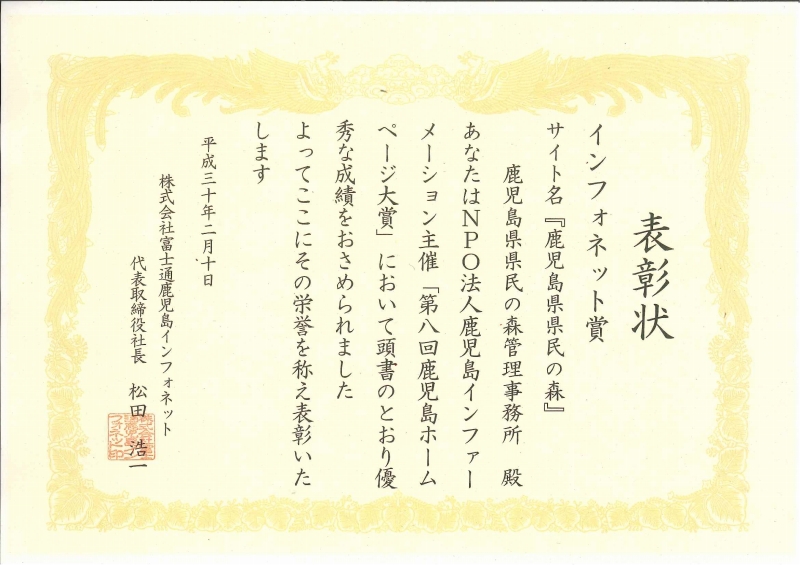 表彰状
インフォネット賞
サイト名『鹿児島県県民の森』
鹿児島県県民の森管理事務所　殿
あなたはNPO法人鹿児島インファー
メーション主催「第八回鹿児島ホーム
ページ大賞」において頭書のとおり優
秀な成績をおさめられました
よってここにその栄誉を称え表彰いた
します
平成三十年二月十日
株式会社富士通鹿児島インフォネット
代表取締役社長　松田　浩一